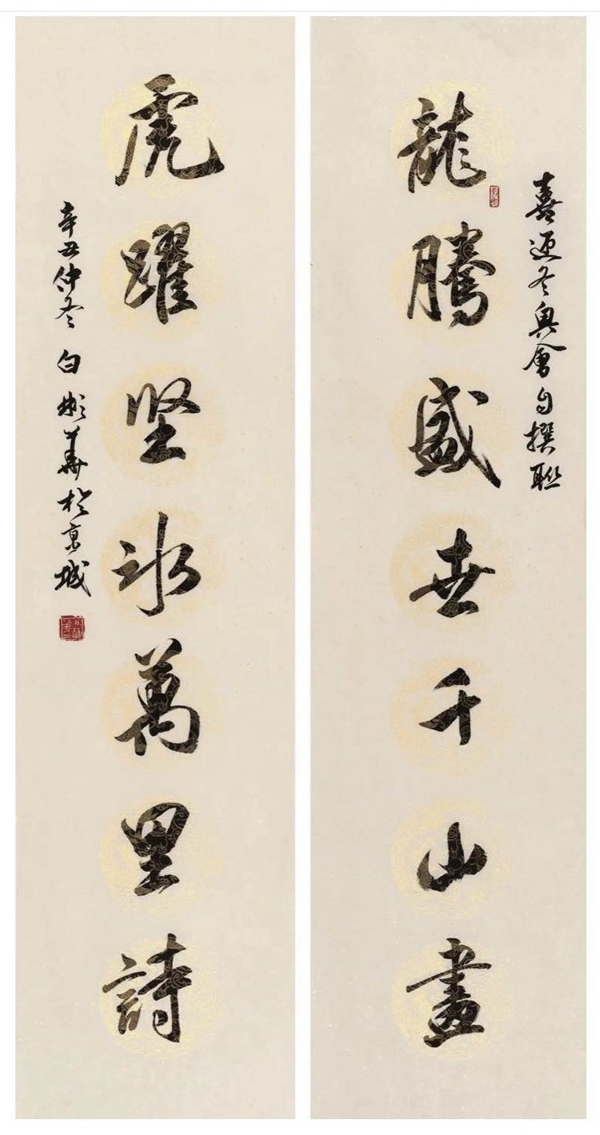 喜迎冬奥會自撰聯
龍騰盛世千山畫
虎躍坚冰萬里詩
辛丑仲冬 白彬華於京城